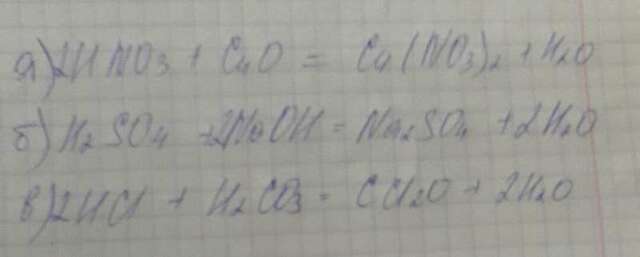 а) 2HNO3 + CuO = Cu(NO3)2 + H2O
б) H2SO4 + 2NaOH = Na2SO4 + 2H2O
в) 2HCl + H2CO3 = CCl2O + 2H2O